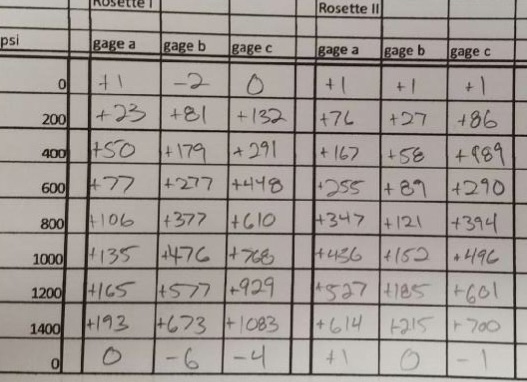 Rosette I Rosette II
psi gage a gage b gage c gage a gage b gage c
0 +1 -2 0 +1 +1 +1
200 +23 +81 +132 +76 +27 +86
400 +50 +179 +291 +167 +58 +189
600 +77 +277 +448 +255 +89 +290
800 +106 +377 +610 +347 +121 +394
1000 +135 +476 +768 +436 +152 +496
1200 +165 +577 +929 +527 +185 +601
1400 +193 +673 +1083 +614 +215 +700
0 0 -6 -4 +1 0 -1